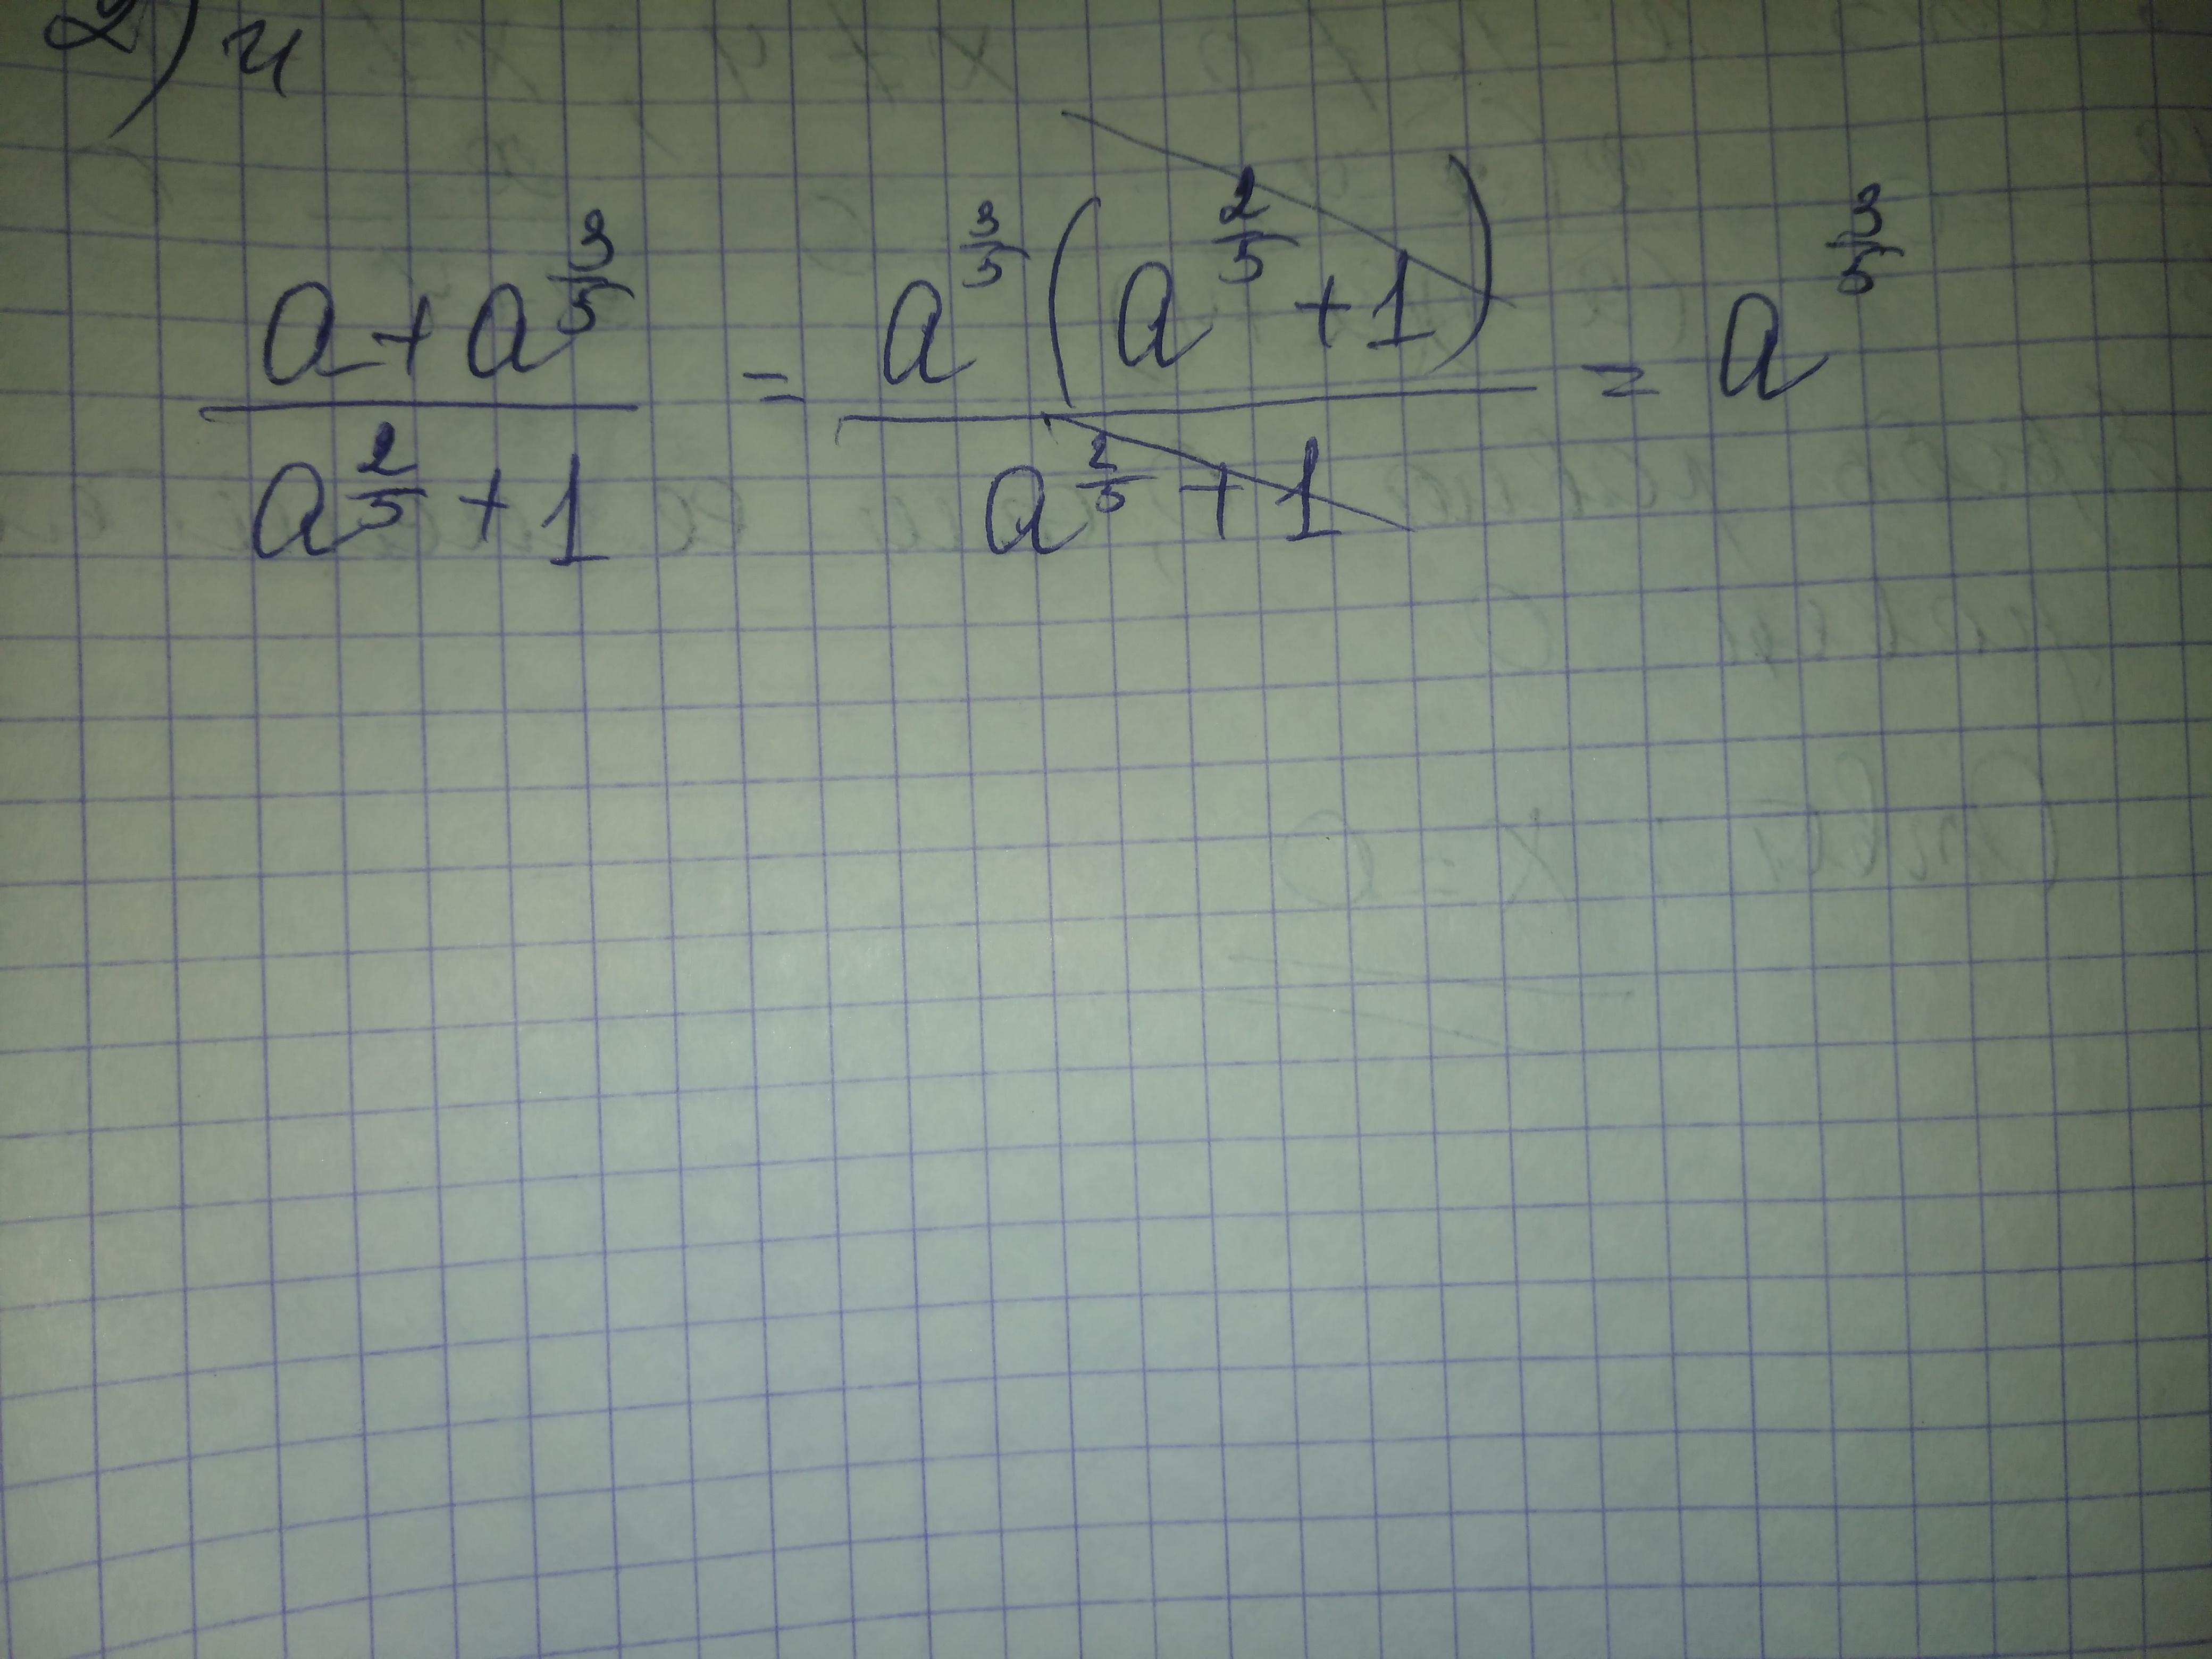 2) и
(a + a^(3/5)) / (a^(2/5) + 1) = a^(3/5) (a^(2/5) + 1) / (a^(2/5) + 1) = a^(3/5)